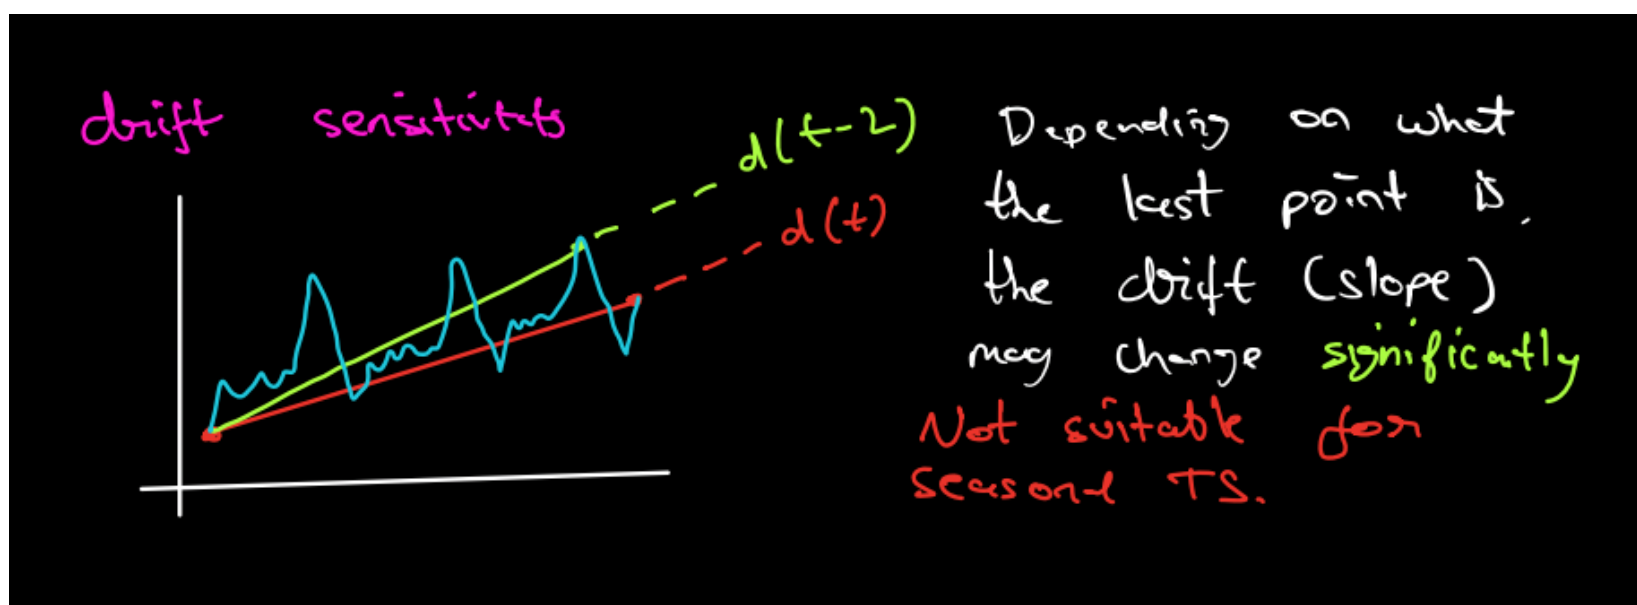 drift sensitivity
d(t-2)
d(t)
Depending on what
the last point is,
the drift (slope)
may change significantly
Not suitable for
seasonal TS.